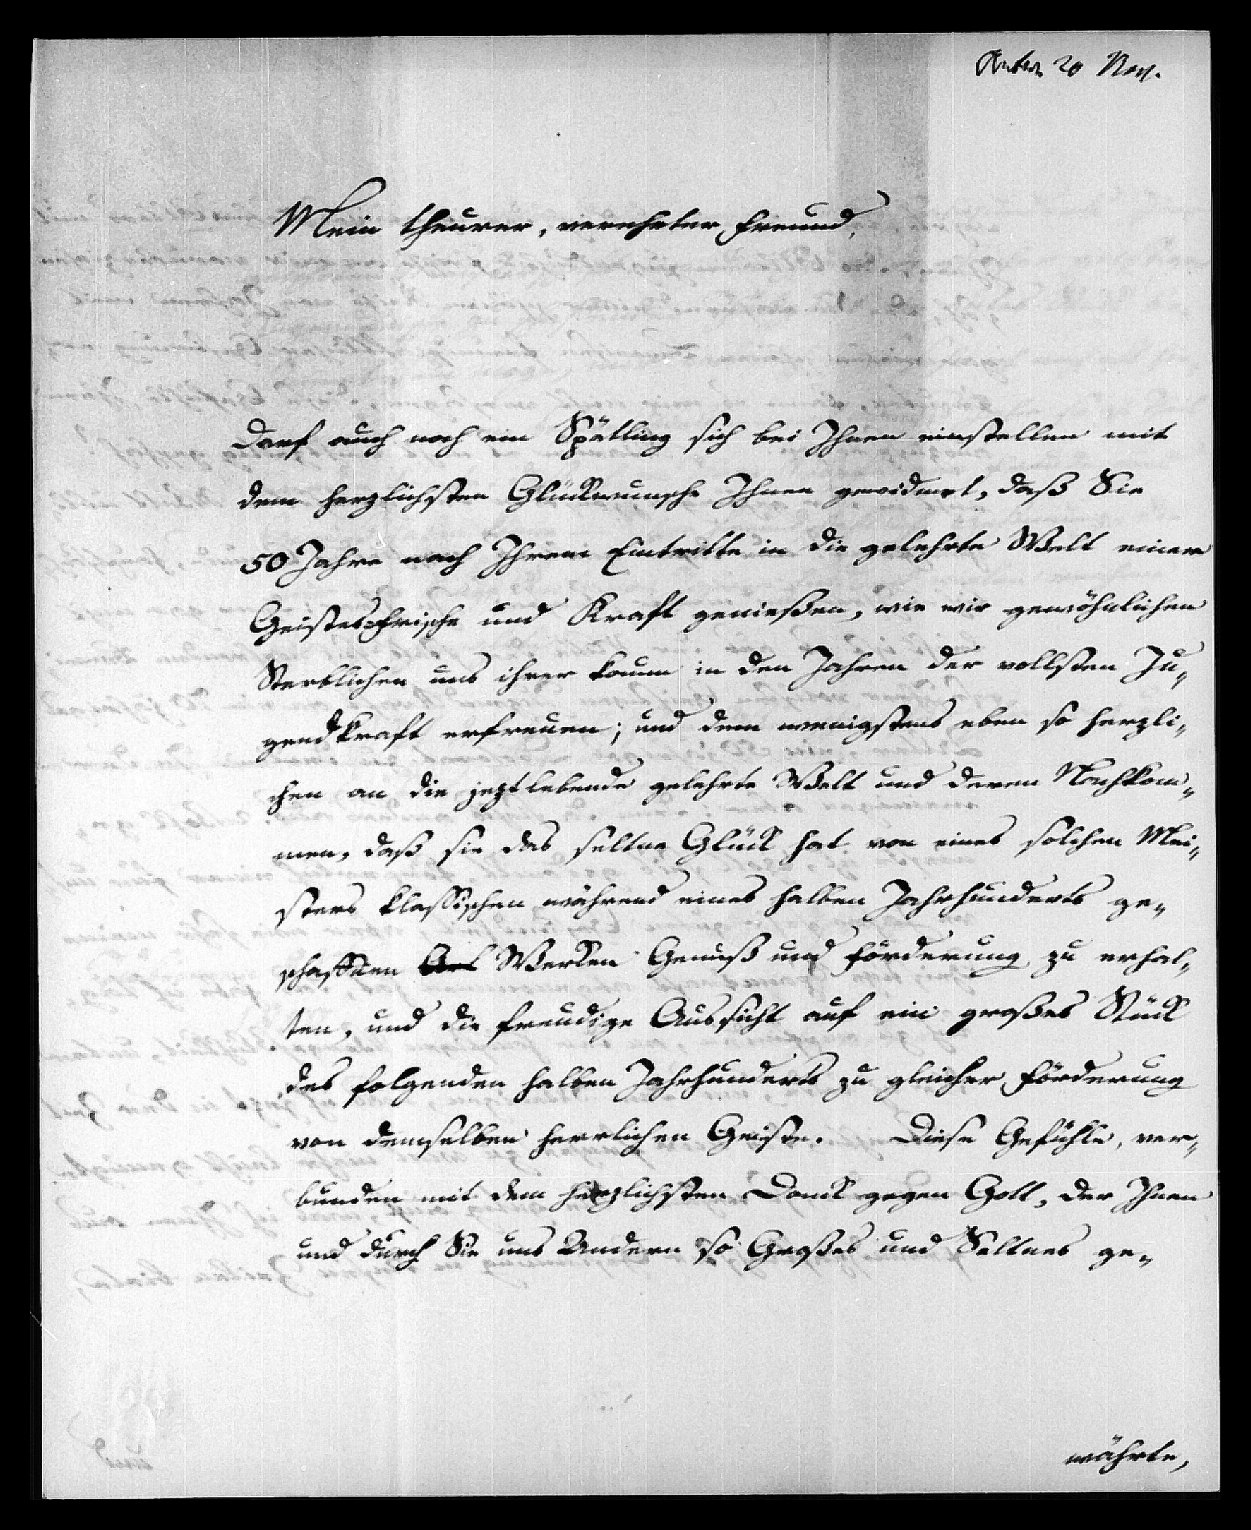 Antw. 20 Nov.
Mein theurer, verehrter Freund,
Darf auch noch ein Spätling sich bei Ihnen einstellen mit
dem herzlichsten Glückwunsche Ihnen gewidmet, daß Sie
50 Jahre nach Ihrem Eintritte in die gelehrte Welt einer
Geistesfrische und Kraft genießen, wie wir gewöhnlichen
Sterblichen uns ihrer kaum in den Jahren der vollsten Ju-
gendkraft erfreuen; und dem wenigstens eben so herzli-
chen an die jeztlebende gelehrte Welt und deren Nachkom-
men, daß sie das seltne Glück hat von eines solchen Mei-
sters klassischen während eines halben Jahrhunderts ge-
schaffnen Werken Genuß und Förderung zu erhal-
ten, und die freudige Aussicht auf ein großes Stück
des folgenden halben Jahrhunderts zu gleicher Förderung
von demselben herrlichen Geiste. Diese Gefühle, ver-
bunden mit dem herzlichsten Danck gegen Gott, der Ihnen
und durch Sie uns Andern so Großes und Seltnes ge-
währte,